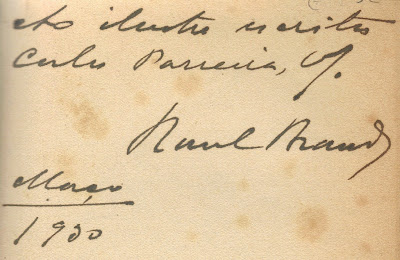 Ao ilustre escritor
Carlos Parreira, of.
Raul Brandão
Março
1930